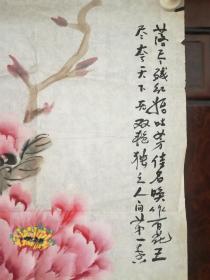 落尽残红始吐芳佳名唤作百花王
尽夸天下无双艳独立人间第一香